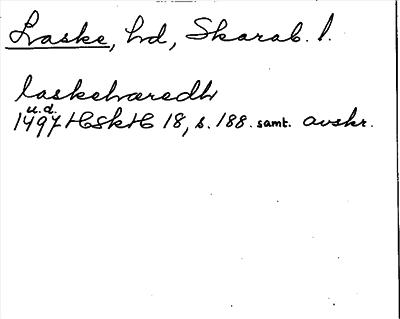 Laske, hd, Skarab. l.
laskehæredh
u.d.
1497 HSkH 18, s. 188. samt. avskr.